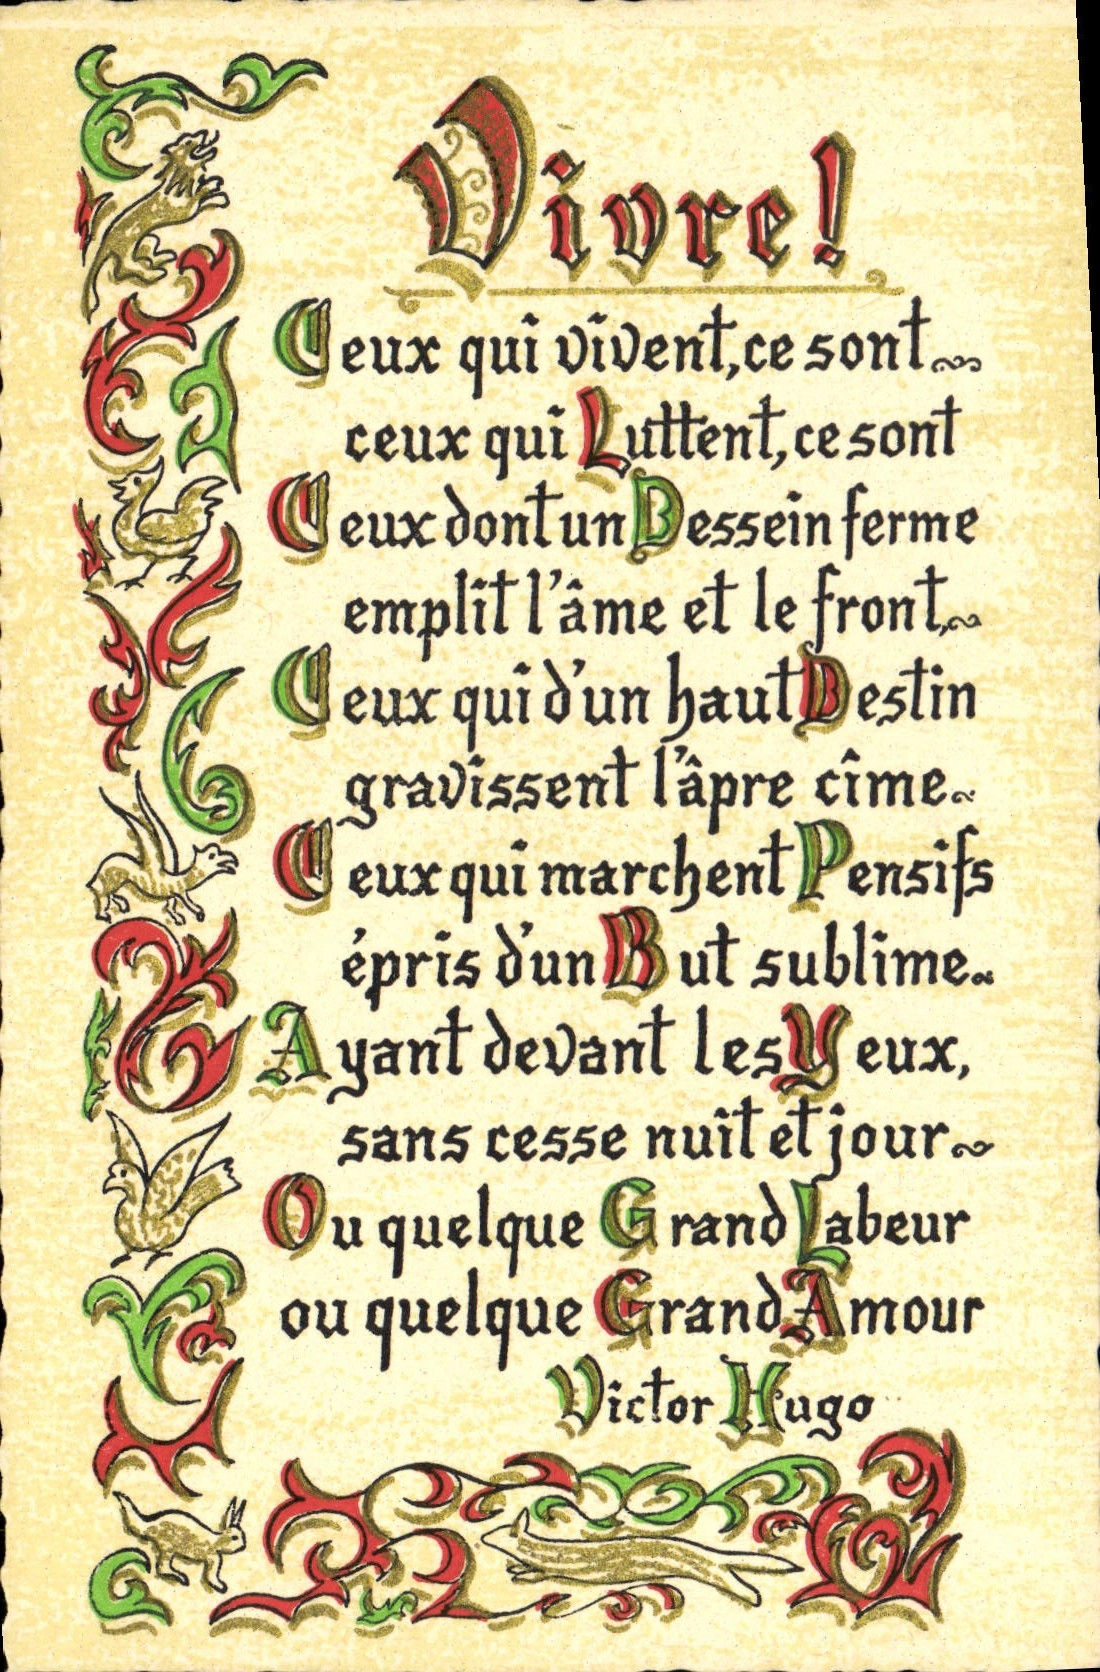 Vivre!
Ceux qui vivent, ce sont
ceux qui Luttent, ce sont
Ceux dont un Dessein ferme
emplit l'âme et le front,
Ceux qui d'un haut Destin
gravissent l'âpre cîme.
Ceux qui marchent Pensifs
épris d'un But sublime.
Ayant devant les Yeux,
sans cesse nuit et jour
Ou quelque Grand Labeur
ou quelque Grand Amour
Victor Hugo